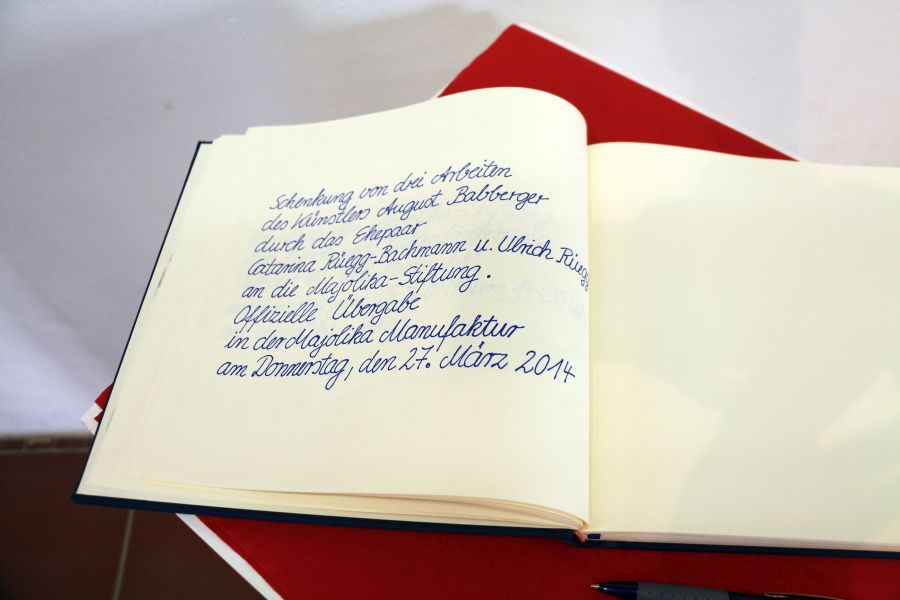 Schenkung von drei Arbeiten
des Künstlers August Babberger
durch das Ehepaar
Catarina Rüegg-Bachmann u. Ulrich Rüegg
an die Majolika-Stiftung.
Offizielle Übergabe
in der Majolika Manufaktur
am Donnerstag, den 27. März 2014